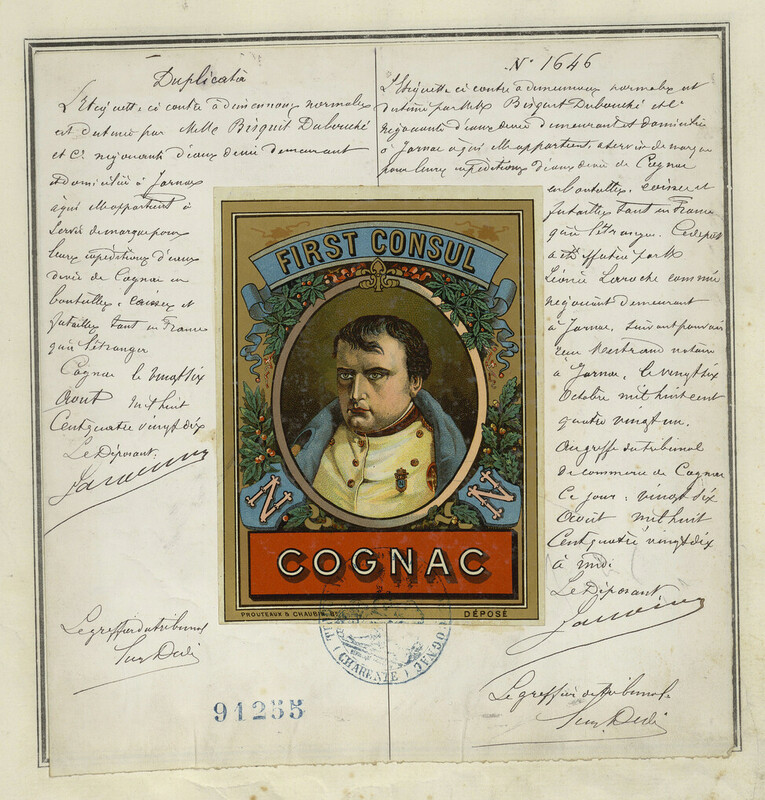 Duplicata
L'Etiquette ci contre à dimensions normales
est destinée par MM Bisquit Dubouché
et Cie négociants d'eaux de vie demeurant
et domiciliés à Jarnac
à qui elle appartient à
servir de marque pour
leurs expéditions d'eaux
de vie de Cognac en
bouteilles, caisses et
futailles tant en France
qu'à l'étranger
Cognac le vingt six
Août mil huit
Cent quatre vingt dix
Le Déposant:
Le greffier du tribunal
N° 1646
L'Etiquette ci contre à dimensions normales est
destinée par MM Bisquit Dubouché et Cie
négociants d'eaux de vie demeurant et domiciliés
à Jarnac à qui elle appartient, à servir de marque
pour leurs expéditions d'eaux de vie de Cognac
en bouteilles, caisses et
futailles tant en France
qu'à l'étranger. Ce dépôt
a été effectué par M
Léonce Laroche commis
négociant demeurant
à Jarnac, suivant pouvoir
reçu Mestrand notaire
à Jarnac, le vingt six
Octobre mil huit cent
quatre vingt un.
Au greffe du tribunal
de commerce de Cognac
Ce jour: vingt six
Août mil huit
Cent quatre vingt dix
à midi
Le Déposant
Le greffier du tribunal
FIRST CONSUL
N N
COGNAC
PROUTEAUX & CHAUBIN
DÉPOSÉ
COGNAC
(CHARENTE)
91255